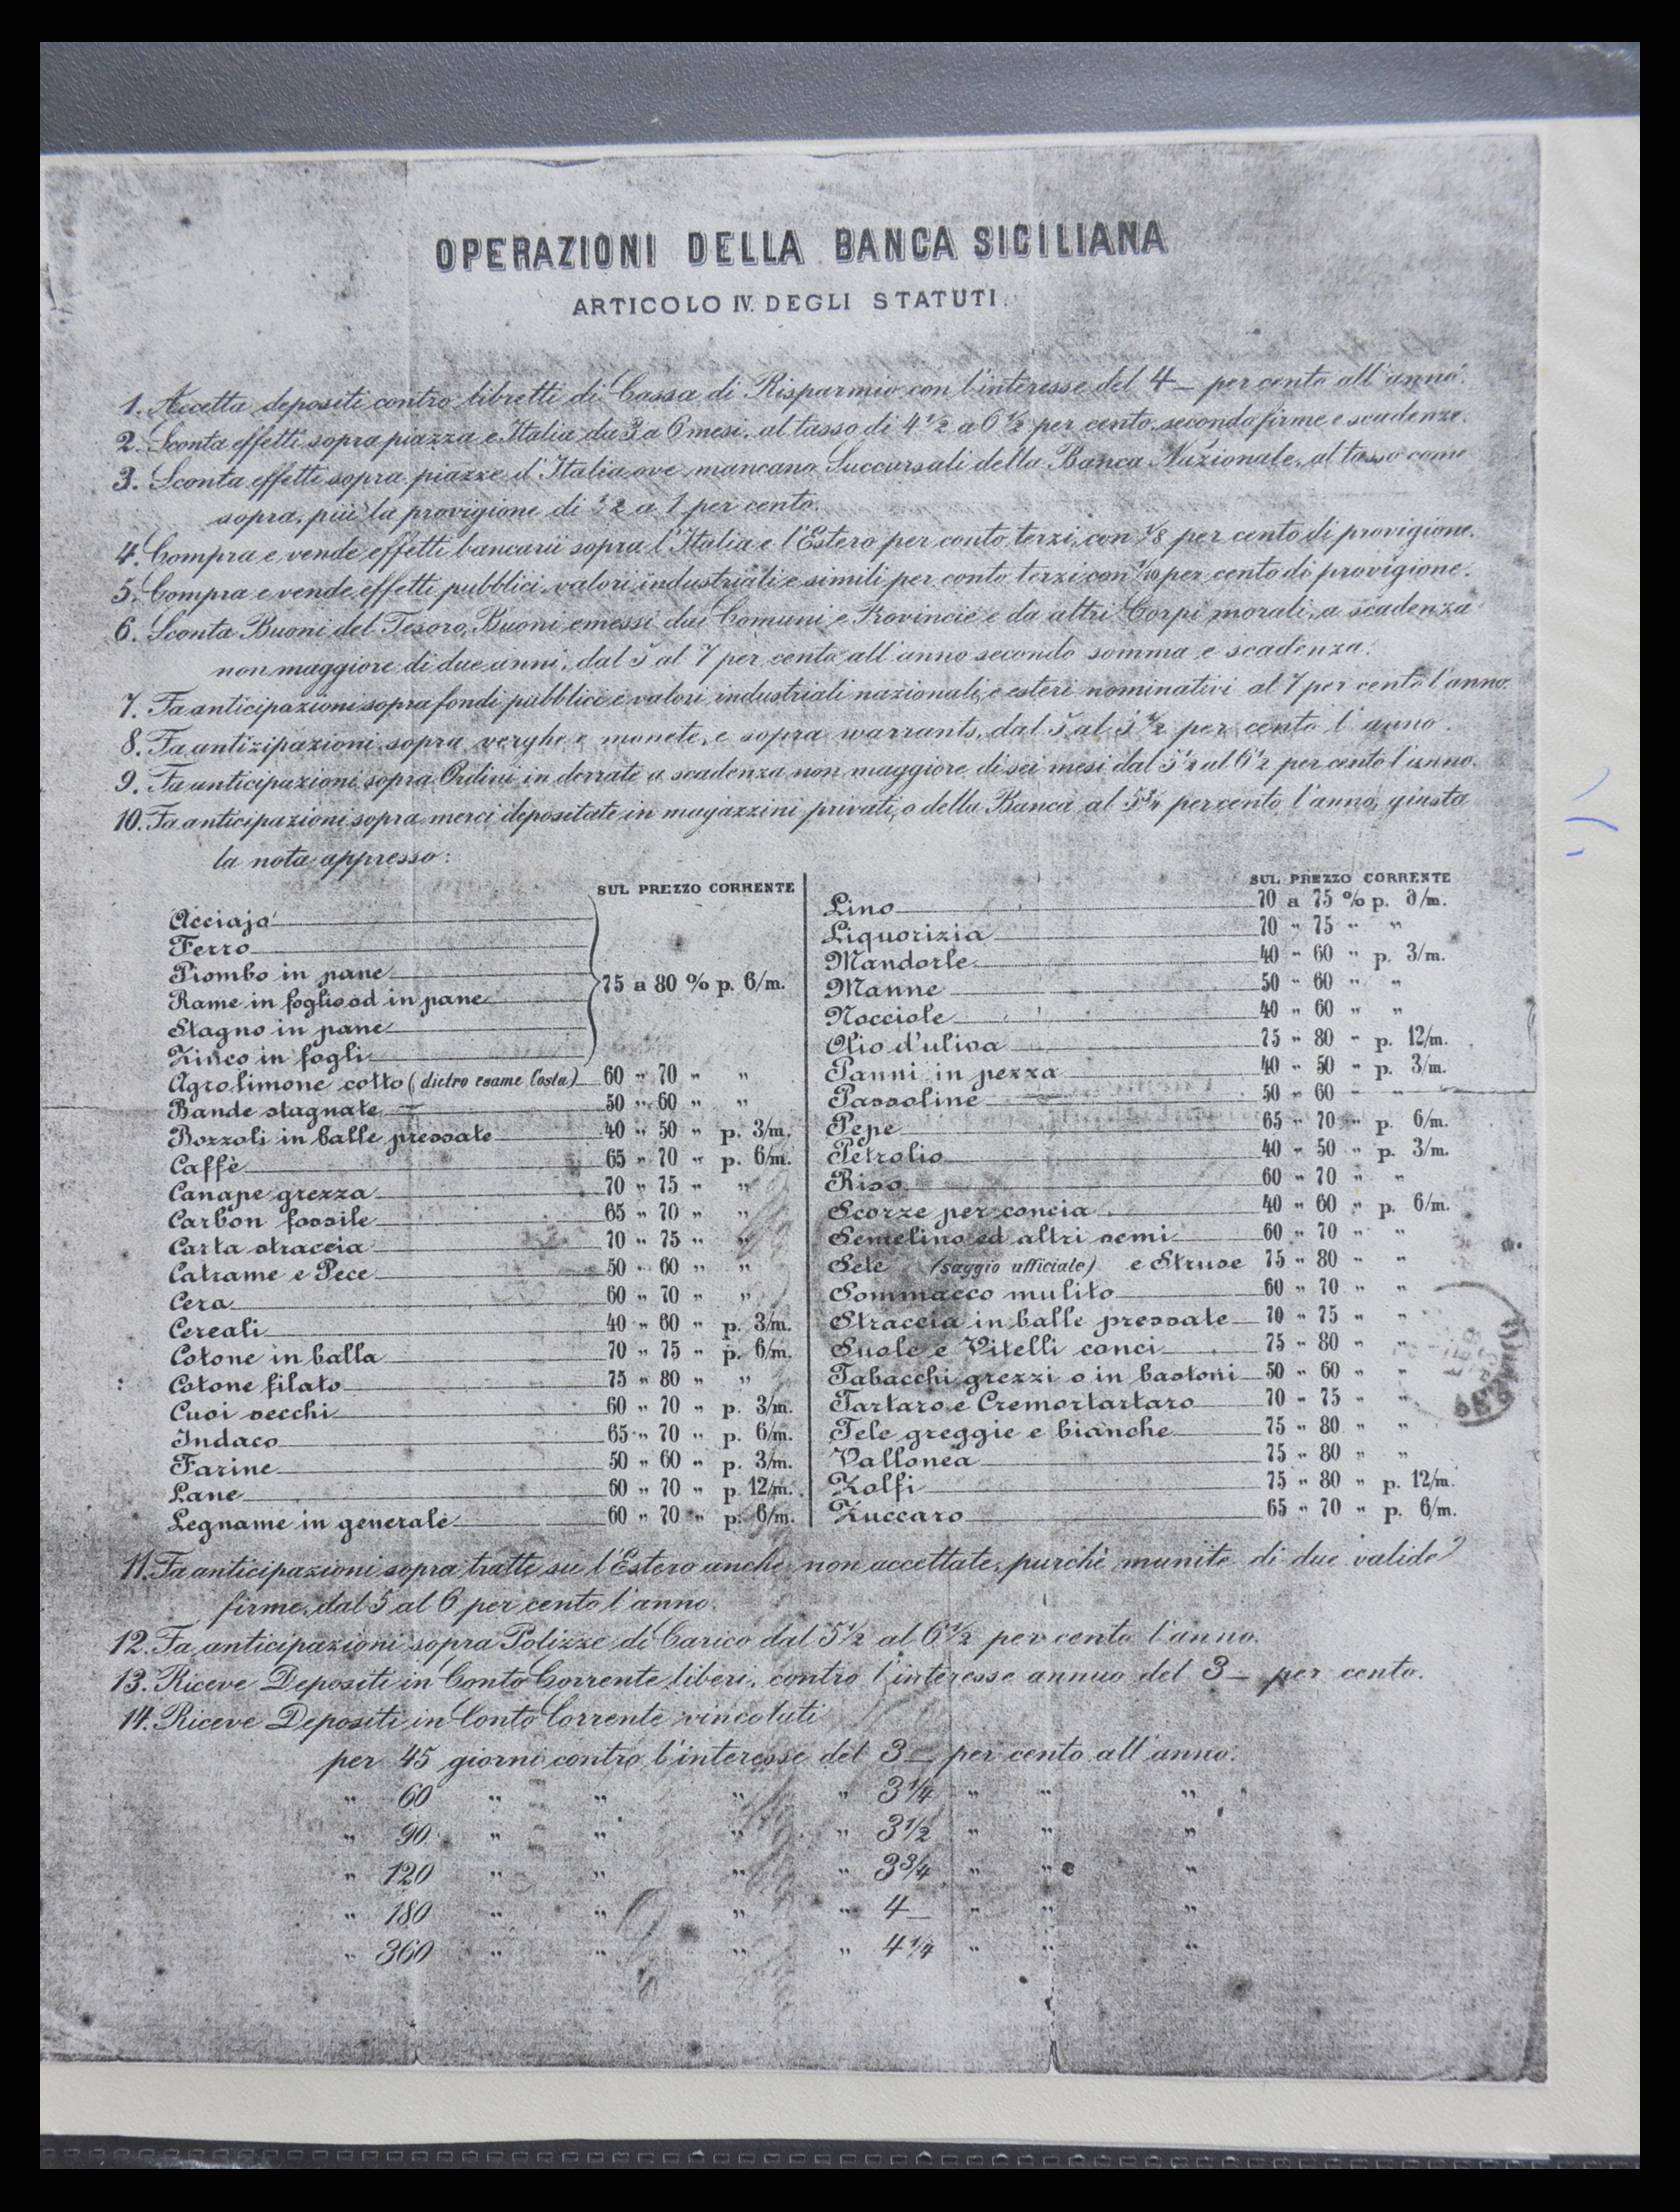 OPERAZIONI DELLA BANCA SICILIANA
ARTICOLO IV. DEGLI STATUTI.
1. Accetta depositi contro libretti di Cassa di Risparmio con l'interesse del 4 — per cento all'anno.
2. Sconta effetti sopra piazza e Italia da 3 a 6 mesi, al tasso di 4 1/2 a 6 1/2 per cento, secondo firme e scadenze.
3. Sconta effetti sopra piazze d'Italia ove mancano Succursali della Banca Nazionale, al tasso come
sopra, più la provigione di 1/2 a 1 per cento.
4. Compra e vende effetti bancarii sopra l'Italia e l'Estero per conto terzi, con 1/8 per cento di provigione.
5. Compra e vende effetti pubblici, valori industriali e simili per conto terzi con 1/10 per cento di provigione.
6. Sconta Buoni del Tesoro, Buoni emessi dai Comuni e Provincie e da altri Corpi morali, a scadenza
non maggiore di due anni, dal 5 al 7 per cento all'anno secondo somma e scadenza.
7. Fa anticipazioni sopra fondi pubblici e valori industriali nazionali, e esteri nominativi al 7 per cento l'anno.
8. Fa antizipazioni sopra verghe e monete, e sopra warrants, dal 5 al 5 1/2 per cento l'anno.
9. Fa anticipazioni sopra Ordini in derrate a scadenza non maggiore di sei mesi dal 5 1/2 al 6 1/2 per cento l'anno.
10. Fa anticipazioni sopra merci depositate in magazzini privati, o della Banca al 5 3/4 per cento l'anno, giusta
la nota appresso:
SUL PREZZO CORRENTE
Acciajo
Ferro
Piombo in pane
Rame in foglio od in pane
Stagno in pane
Zinco in fogli
75 a 80 % p. 6/m.
Agro limone cotto (dietro esame l'osta) 60 " 70 " "
Bande stagnate 50 " 60 " "
Bozzoli in balle pressate 40 " 50 " p. 3/m.
Caffè 65 " 70 " p. 6/m.
Canape grezza 70 " 75 " "
Carbon fossile 65 " 70 " "
Carta straccia 70 " 75 " "
Catrame e Pece 50 " 60 " "
Cera 60 " 70 " "
Cereali 40 " 60 " p. 3/m.
Cotone in balla 70 " 75 " p. 6/m.
Cotone filato 75 " 80 " "
Cuoi secchi 60 " 70 " p. 3/m.
Indaco 65 " 70 " p. 6/m.
Farine 50 " 60 " p. 3/m.
Lane 60 " 70 " p. 12/m.
Legname in generale 60 " 70 " p. 6/m.
SUL PREZZO CORRENTE
Lino 70 a 75 % p. 6/m.
Liquorizia 70 " 75 " "
Mandorle 40 " 60 " p. 3/m.
Manne 50 " 60 " "
Nocciole 40 " 60 " "
Olio d'uliva 75 " 80 " p. 12/m.
Panni in pezza 40 " 50 " p. 3/m.
Passoline 50 " 60 " "
Pepe 65 " 70 " p. 6/m.
Petrolio 40 " 50 " p. 3/m.
Riso 60 " 70 " "
Scorze per concia 40 " 60 " p. 6/m.
Semelino ed altri semi 60 " 70 " "
Sete (saggio ufficiale) e Struse 75 " 80 " "
Sommacco mulito 60 " 70 " "
Straccia in balle pressate 70 " 75 " "
Suole e Vitelli conci 75 " 80 " "
Tabacchi grezzi o in bastoni 50 " 60 " "
Tartaro e Cremortartaro 70 " 75 " "
Tele greggie e bianche 75 " 80 " "
Vallonea 75 " 80 " "
Zolfi 75 " 80 " p. 12/m.
Zuccaro 65 " 70 " p. 6/m.
11. Fa anticipazioni sopra tratte su l'Estero anche non accettate, purchè munite di due valide
firme, dal 5 al 6 per cento l'anno.
12. Fa anticipazioni sopra Polizze di Carico dal 5 1/2 al 6 1/2 per cento l'anno.
13. Riceve Depositi in Conto Corrente liberi, contro l'interesse annuo del 3 — per cento.
14. Riceve Depositi in Conto Corrente vincolati
per 45 giorni contro l'interesse del 3 — per cento all'anno.
" 60 " " " " 3 1/4 " " "
" 90 " " " " 3 1/2 " " "
" 120 " " " " 3 3/4 " " "
" 180 " " " " 4 — " " "
" 360 " " " " 4 1/4 " " "